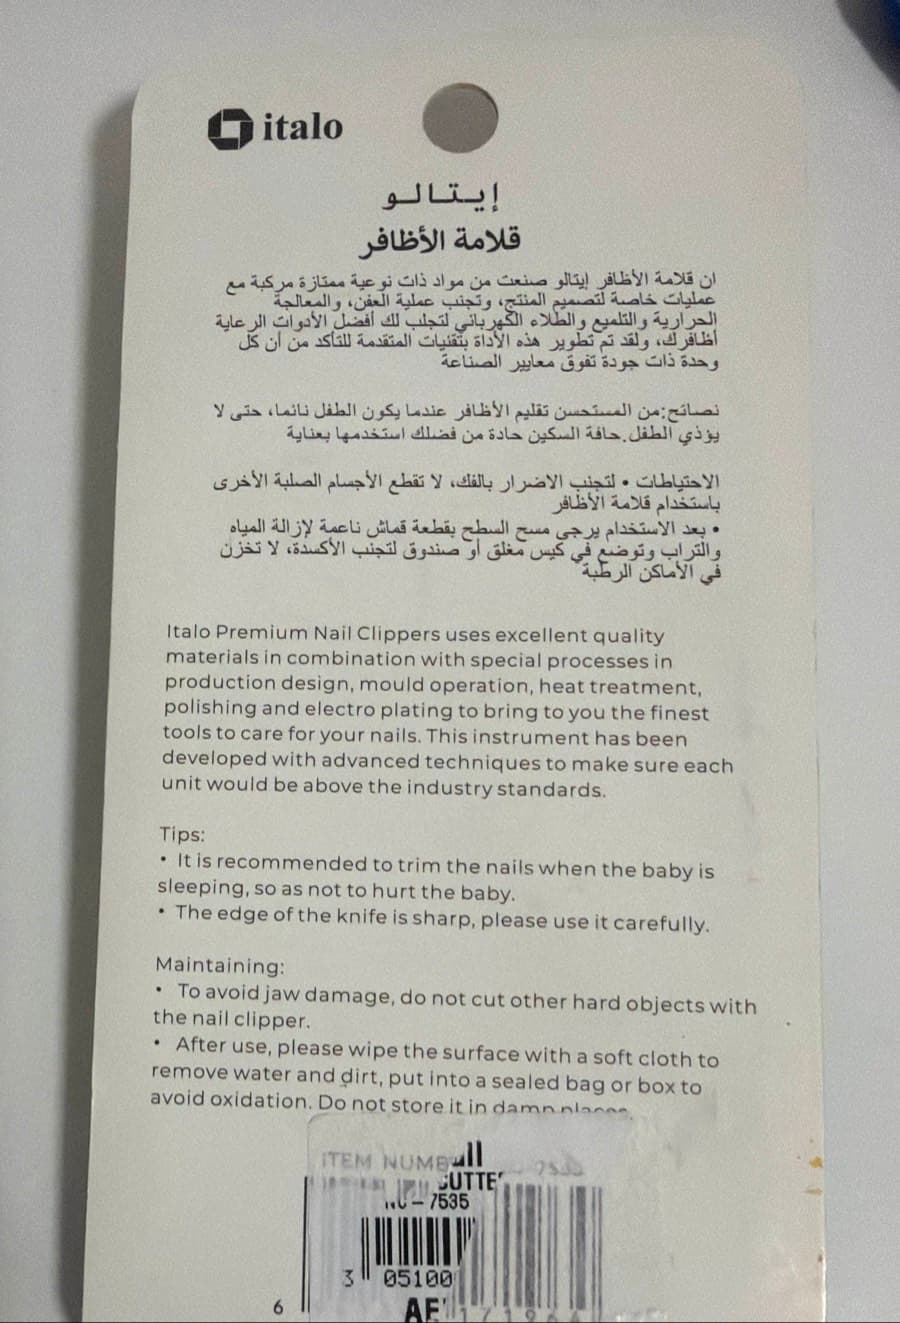 italo
إيتالو
قلامة الأظافر
ان قلامة الأظافر إيتالو صنعت من مواد ذات نوعية ممتازة مركبة مع
عمليات خاصة لتصميم المنتج، وتجنب عملية العفن، والمعالجة
الحرارية والتلميع والطلاء الكهربائي لتجلب لك أفضل الأدوات الرعاية
أظافرك، ولقد تم تطوير هذه الأداة بتقنيات المتقدمة للتأكد من أن كل
وحدة ذات جودة تفوق معايير الصناعة
نصائح:من المستحسن تقليم الأظافر عندما يكون الطفل نائما، حتى لا
يؤذي الطفل.حافة السكين حادة من فضلك استخدمها بعناية
الاحتياطات • لتجنب الاضرار بالفك، لا تقطع الأجسام الصلبة الأخرى
باستخدام قلامة الأظافر
• بعد الاستخدام يرجى مسح السطح بقطعة قماش ناعمة لإزالة المياه
والتراب وتوضع في كيس مغلق أو صندوق لتجنب الأكسدة، لا تخزن
في الأماكن الرطبة
Italo Premium Nail Clippers uses excellent quality
materials in combination with special processes in
production design, mould operation, heat treatment,
polishing and electro plating to bring to you the finest
tools to care for your nails. This instrument has been
developed with advanced techniques to make sure each
unit would be above the industry standards.
Tips:
• It is recommended to trim the nails when the baby is
sleeping, so as not to hurt the baby.
• The edge of the knife is sharp, please use it carefully.
Maintaining:
• To avoid jaw damage, do not cut other hard objects with
the nail clipper.
• After use, please wipe the surface with a soft cloth to
remove water and dirt, put into a sealed bag or box to
avoid oxidation. Do not store it in damp places.
ITEM NUMB
7535
3 05100
6